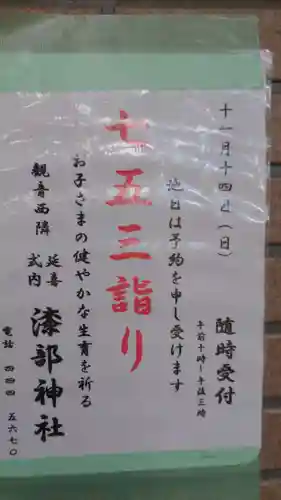 十一月十四日（日）
随時受付
午前十時～午後三時
他日は予約を申し受けます
七五三詣り
お子さまの健やかな生育を祈る
観音西隣
延喜式内
漆部神社
電話 四四四 五六七〇